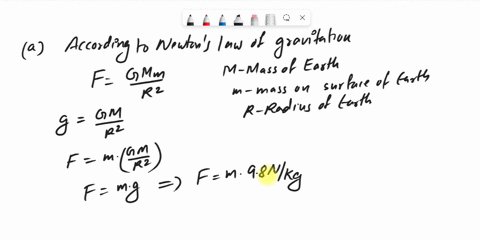 (a) According to Newton's law of gravitation
F = GMm/R²
M-Mass of Earth
m-mass on surface of Earth
R-Radius of Earth
g = GM/R²
F = m·(GM/R²)
F = m·g ⇒ F = m·9.8N/kg